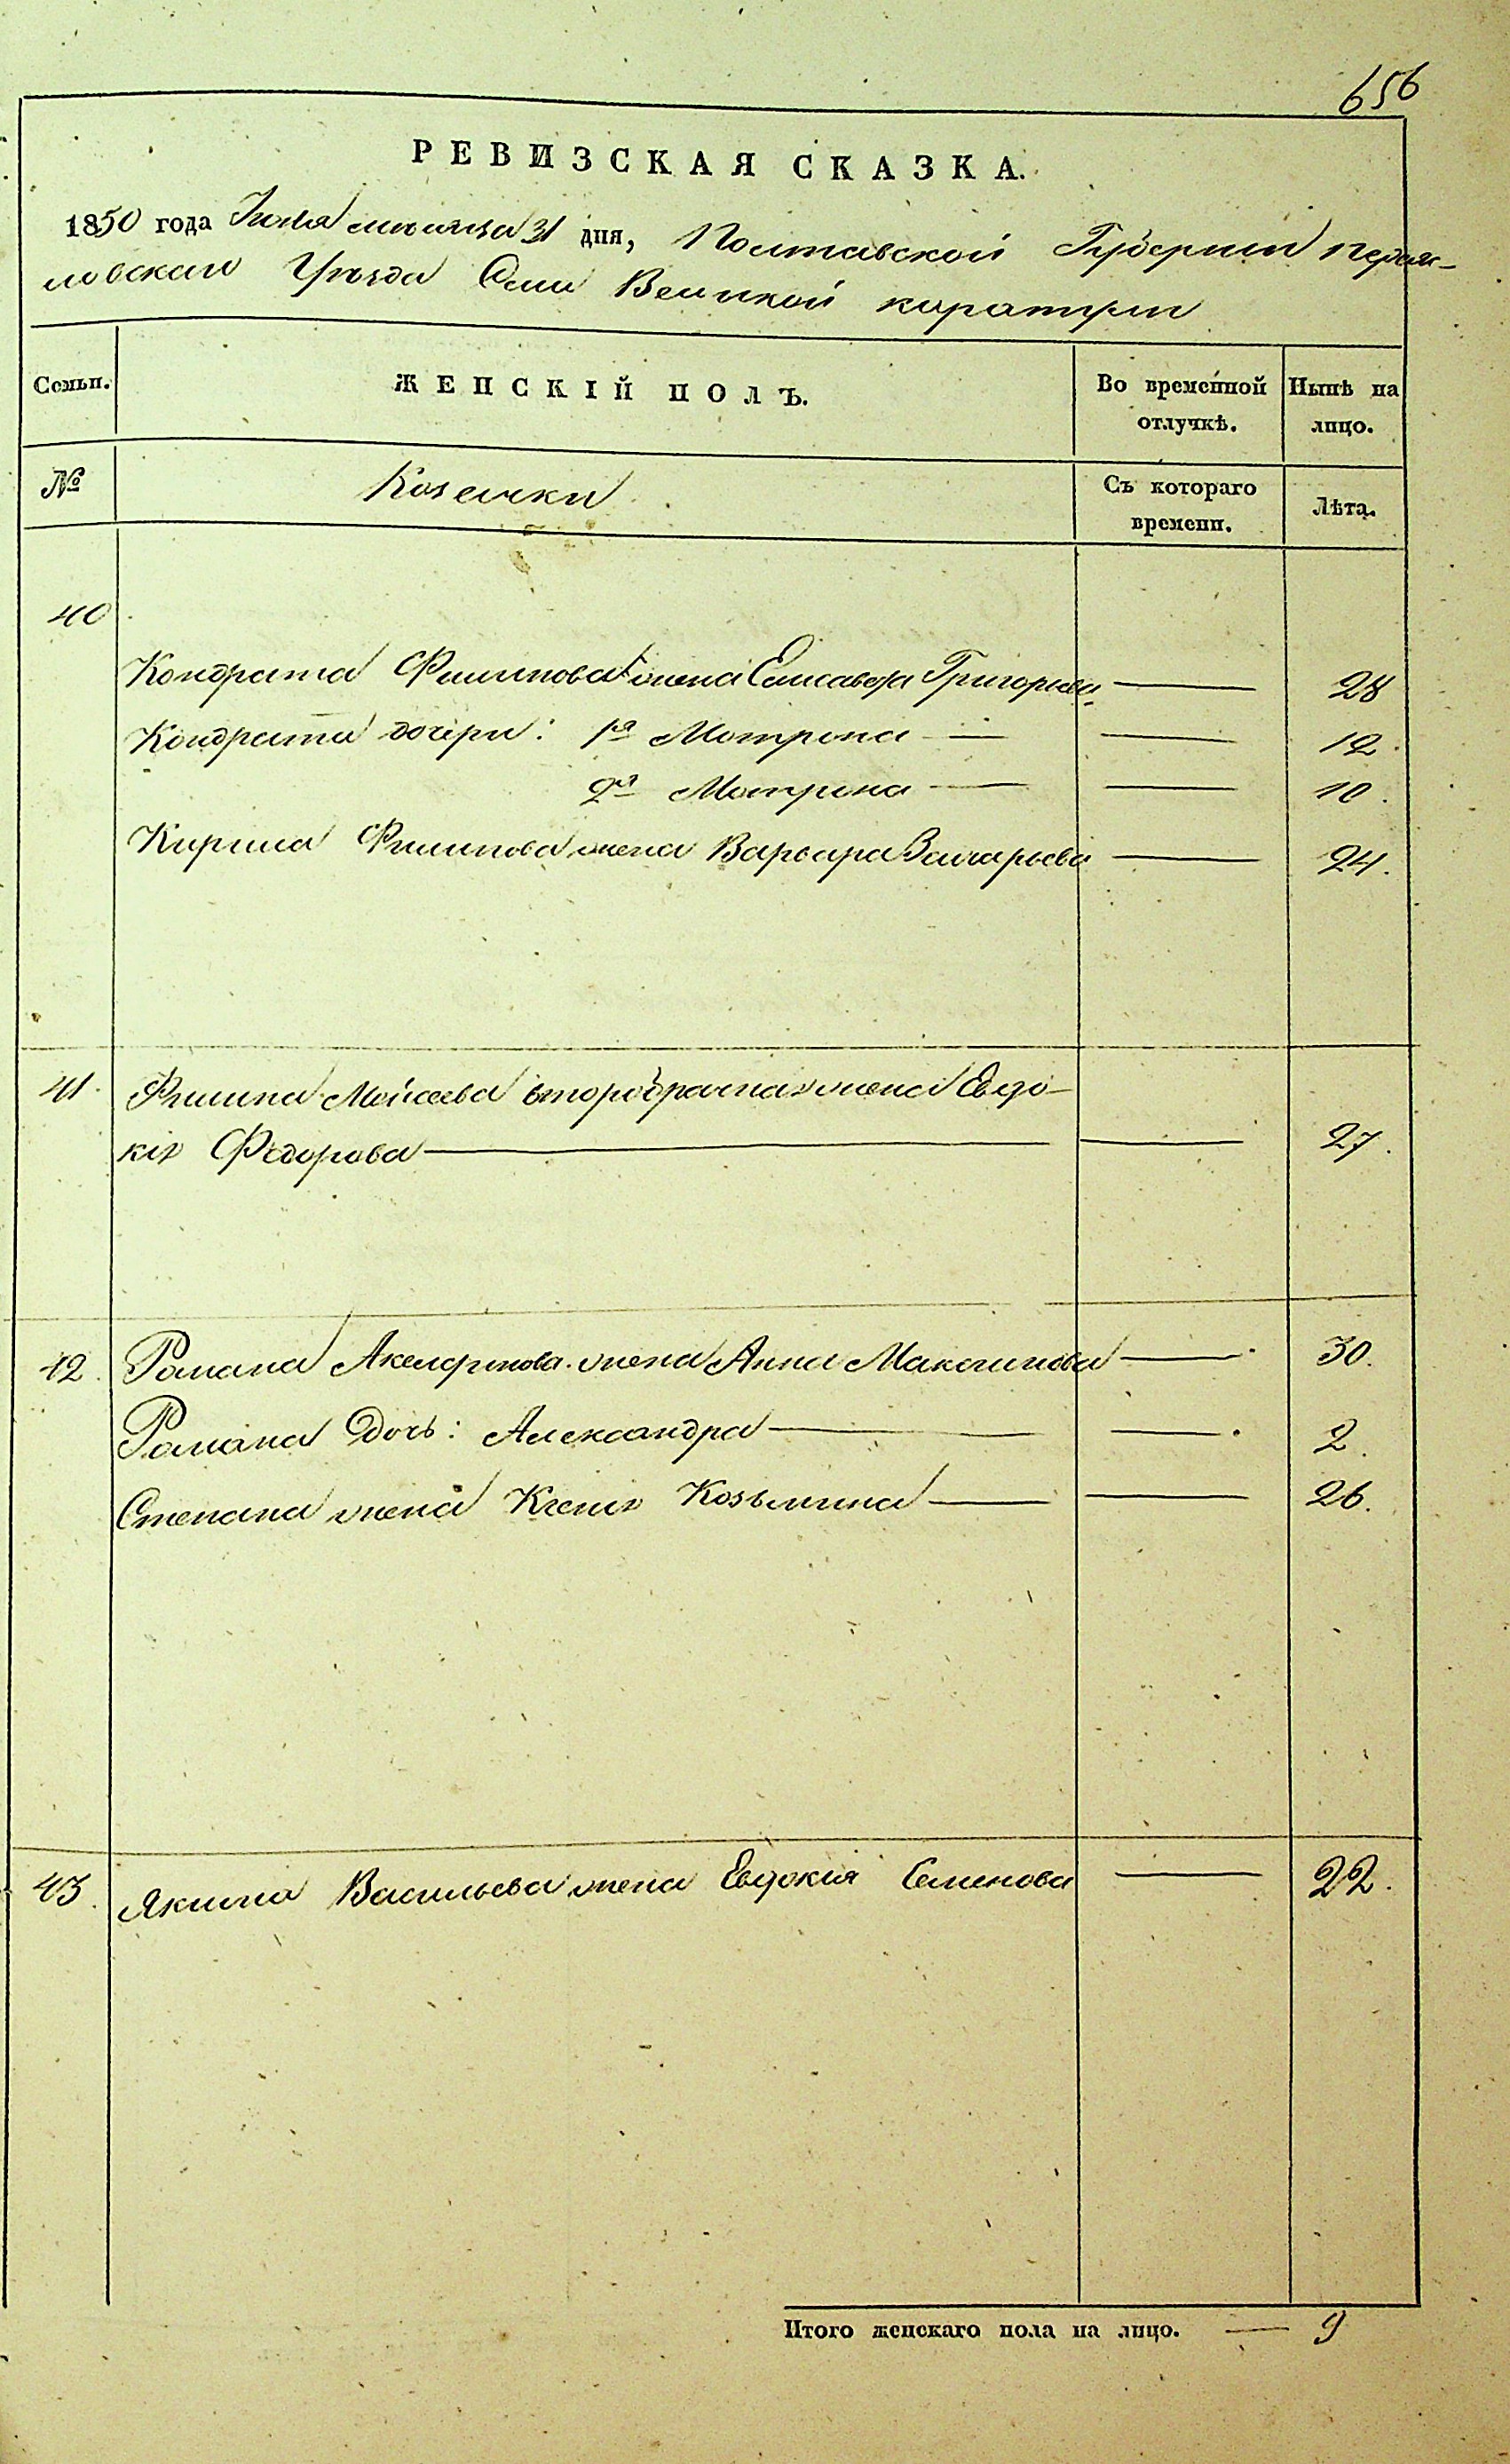 656
РЕВИЗСКАЯ СКАЗКА.
1850 года мѣсяца 31 дня, Полтавской Губерніи Переяс-
ловскаго Уѣзда Села Великой каратули
Семьи. ЖЕНСКІЙ ПОЛЪ. Во временной отлучкѣ. Нынѣ на лицо.
№ Козачки Съ котораго времени. Лѣта.
40
Кондрата Филипова жена Елисавета Григорьева — 28
Кондрата дочери: 1я Мотрона — — 12.
2я Мотрона — — 10.
Кирила Филипова жена Варвара Захарьева — 24.
41. Филипа Моисеева второбрачная жена Евдо-
кія Федорова — — 27.
42. Романа жена Анна Максимова — 30.
Романа дочь: Александра — — 2.
Степана жена Ксенія Козьмина — — 26.
43. Якима Васильева жена Евдокія Семенова — 22.
Итого женскаго пола на лицо. — 9